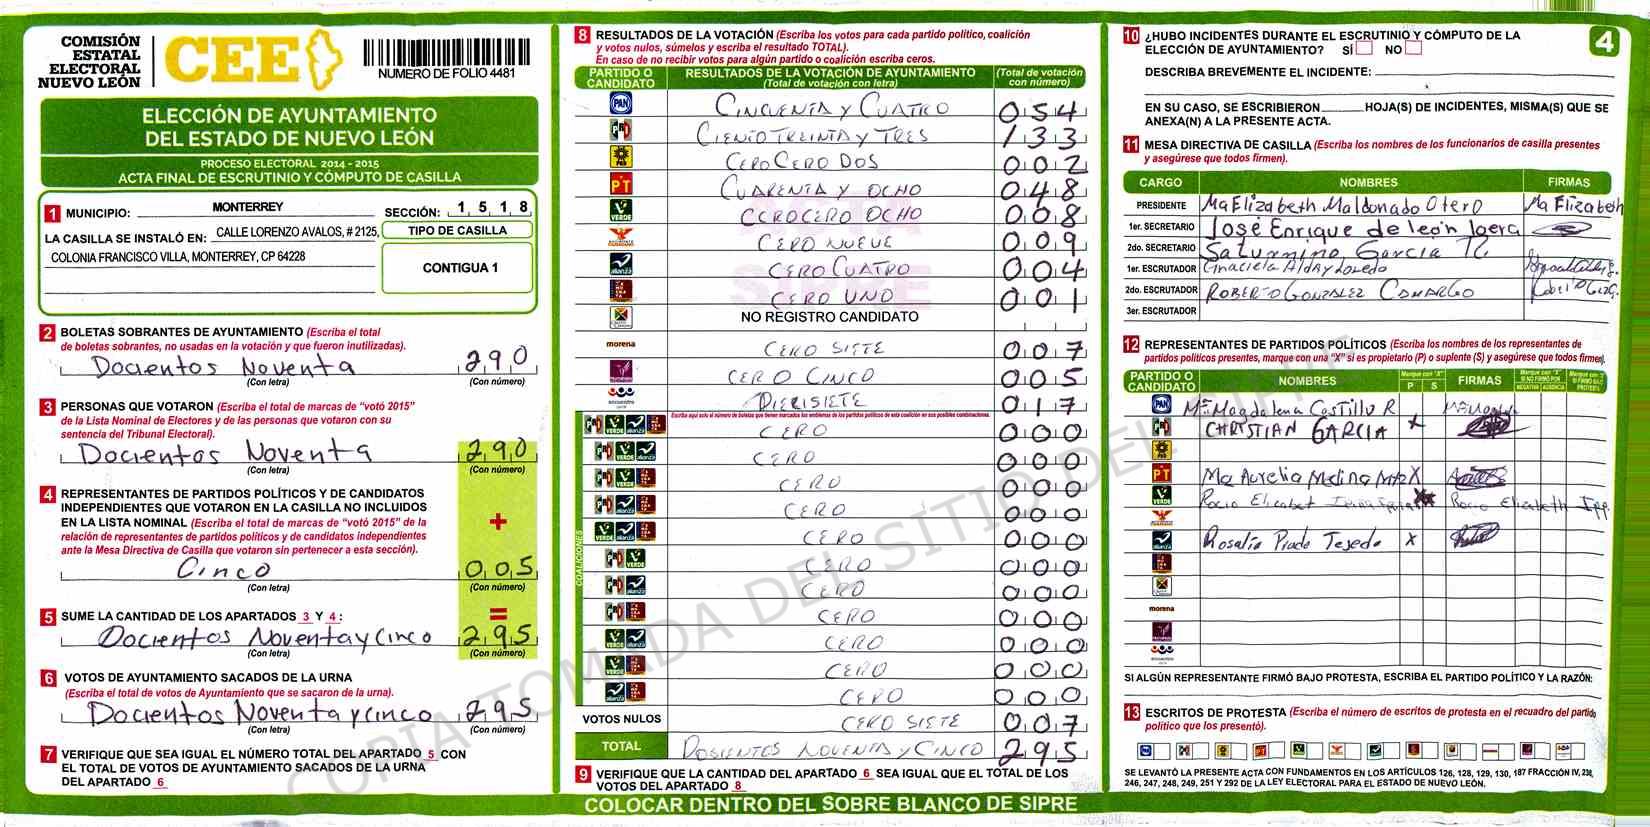 COMISIÓN
ESTATAL
ELECTORAL
NUEVO LEÓN
CEE
NUMERO DE FOLIO 4481
ELECCIÓN DE AYUNTAMIENTO
DEL ESTADO DE NUEVO LEÓN
PROCESO ELECTORAL 2014 - 2015
ACTA FINAL DE ESCRUTINIO Y CÓMPUTO DE CASILLA
1 MUNICIPIO: MONTERREY SECCIÓN: 1 5 1 8
LA CASILLA SE INSTALÓ EN: CALLE LORENZO AVALOS, # 2125,
COLONIA FRANCISCO VILLA, MONTERREY, CP 64228
TIPO DE CASILLA
CONTIGUA 1
2 BOLETAS SOBRANTES DE AYUNTAMIENTO (Escriba el total
de boletas sobrantes, no usadas en la votación y que fueron inutilizadas).
Docientos Noventa 290
(Con letra) (Con número)
3 PERSONAS QUE VOTARON (Escriba el total de marcas de "votó 2015"
de la Lista Nominal de Electores y de las personas que votaron con su
sentencia del Tribunal Electoral).
Docientos Noventa 290
(Con letra) (Con número)
4 REPRESENTANTES DE PARTIDOS POLÍTICOS Y DE CANDIDATOS
INDEPENDIENTES QUE VOTARON EN LA CASILLA NO INCLUIDOS
EN LA LISTA NOMINAL (Escriba el total de marcas de "votó 2015" de la
relación de representantes de partidos políticos y de candidatos independientes
ante la Mesa Directiva de Casilla que votaron sin pertenecer a esta sección).
+
Cinco 005
(Con letra) (Con número)
=
5 SUME LA CANTIDAD DE LOS APARTADOS 3 Y 4 :
Docientos Noventa y cinco 295
(Con letra) (Con número)
6 VOTOS DE AYUNTAMIENTO SACADOS DE LA URNA
(Escriba el total de votos de Ayuntamiento que se sacaron de la urna).
Docientos Noventa y cinco 295
(Con letra) (Con número)
7 VERIFIQUE QUE SEA IGUAL EL NÚMERO TOTAL DEL APARTADO 5 CON
EL TOTAL DE VOTOS DE AYUNTAMIENTO SACADOS DE LA URNA
DEL APARTADO 6
8 RESULTADOS DE LA VOTACIÓN (Escriba los votos para cada partido político, coalición
y votos nulos, súmelos y escriba el resultado TOTAL).
En caso de no recibir votos para algún partido o coalición escriba ceros.
PARTIDO O CANDIDATO
RESULTADOS DE LA VOTACIÓN DE AYUNTAMIENTO
(Total de votación con letra)
(Total de votación con número)
PAN CINCUENTA Y CUATRO 054
PRI CIENTO TREINTA Y TRES 133
PRD CERO CERO DOS 002
PT CUARENTA Y OCHO 048
VERDE CERO CERO OCHO 008
CERO NUEVE 009
alianza CERO CUATRO 004
CERO UNO 001
NO REGISTRO CANDIDATO
morena CERO SIETE 007
CERO CINCO 005
DIECISIETE 017
Escriba aquí solo el número de boletas que tienen marcados los emblemas de los partidos políticos de esta coalición en sus posibles combinaciones.
COALICIONES
CERO 000
CERO 000
CERO 000
CERO 000
CERO 000
CERO 000
CERO 000
CERO 000
CERO 000
CERO 000
CERO 000
VOTOS NULOS CERO SIETE 007
TOTAL DOSIENTOS NOVENTA Y CINCO 295
9 VERIFIQUE QUE LA CANTIDAD DEL APARTADO 6 SEA IGUAL QUE EL TOTAL DE LOS
VOTOS DEL APARTADO 8
ACTA
SIPRE
COLOCAR DENTRO DEL SOBRE BLANCO DE SIPRE
10 ¿HUBO INCIDENTES DURANTE EL ESCRUTINIO Y CÓMPUTO DE LA
ELECCIÓN DE AYUNTAMIENTO? SÍ NO
4
DESCRIBA BREVEMENTE EL INCIDENTE:
EN SU CASO, SE ESCRIBIERON HOJA(S) DE INCIDENTES, MISMA(S) QUE SE
ANEXA(N) A LA PRESENTE ACTA.
11 MESA DIRECTIVA DE CASILLA (Escriba los nombres de los funcionarios de casilla presentes
y asegúrese que todos firmen).
CARGO NOMBRES FIRMAS
PRESIDENTE Ma Elizabeth Maldonado Otero Ma Elizabeth
1er. SECRETARIO José Enrique de león
2do. SECRETARIO Saturnino García
1er. ESCRUTADOR Graciela Alday Loredo
2do. ESCRUTADOR ROBERTO GONZALEZ CAMARGO
3er. ESCRUTADOR
12 REPRESENTANTES DE PARTIDOS POLÍTICOS (Escriba los nombres de los representantes de
partidos políticos presentes, marque con una "X" si es propietario (P) o suplente (S) y asegúrese que todos firmen).
PARTIDO O CANDIDATO NOMBRES Marque con "X" P S FIRMAS
PAN Ma Magdalena Castillo R
PRI CHRISTIAN GARCIA X
PRD
PT Ma Aurelia Medina X
VERDE Rocio Elizabet Rocio Elizabeth
alianza Rosalia Prado Tejeda X
morena
SI ALGÚN REPRESENTANTE FIRMÓ BAJO PROTESTA, ESCRIBA EL PARTIDO POLÍTICO Y LA RAZÓN:
13 ESCRITOS DE PROTESTA (Escriba el número de escritos de protesta en el recuadro del partido
político que los presentó).
SE LEVANTÓ LA PRESENTE ACTA CON FUNDAMENTOS EN LOS ARTÍCULOS 126, 128, 129, 130, 187 FRACCIÓN IV, 238,
246, 247, 248, 249, 251 Y 292 DE LA LEY ELECTORAL PARA EL ESTADO DE NUEVO LEÓN.
COPIA TOMADA DEL SITIO DEL SIPRE